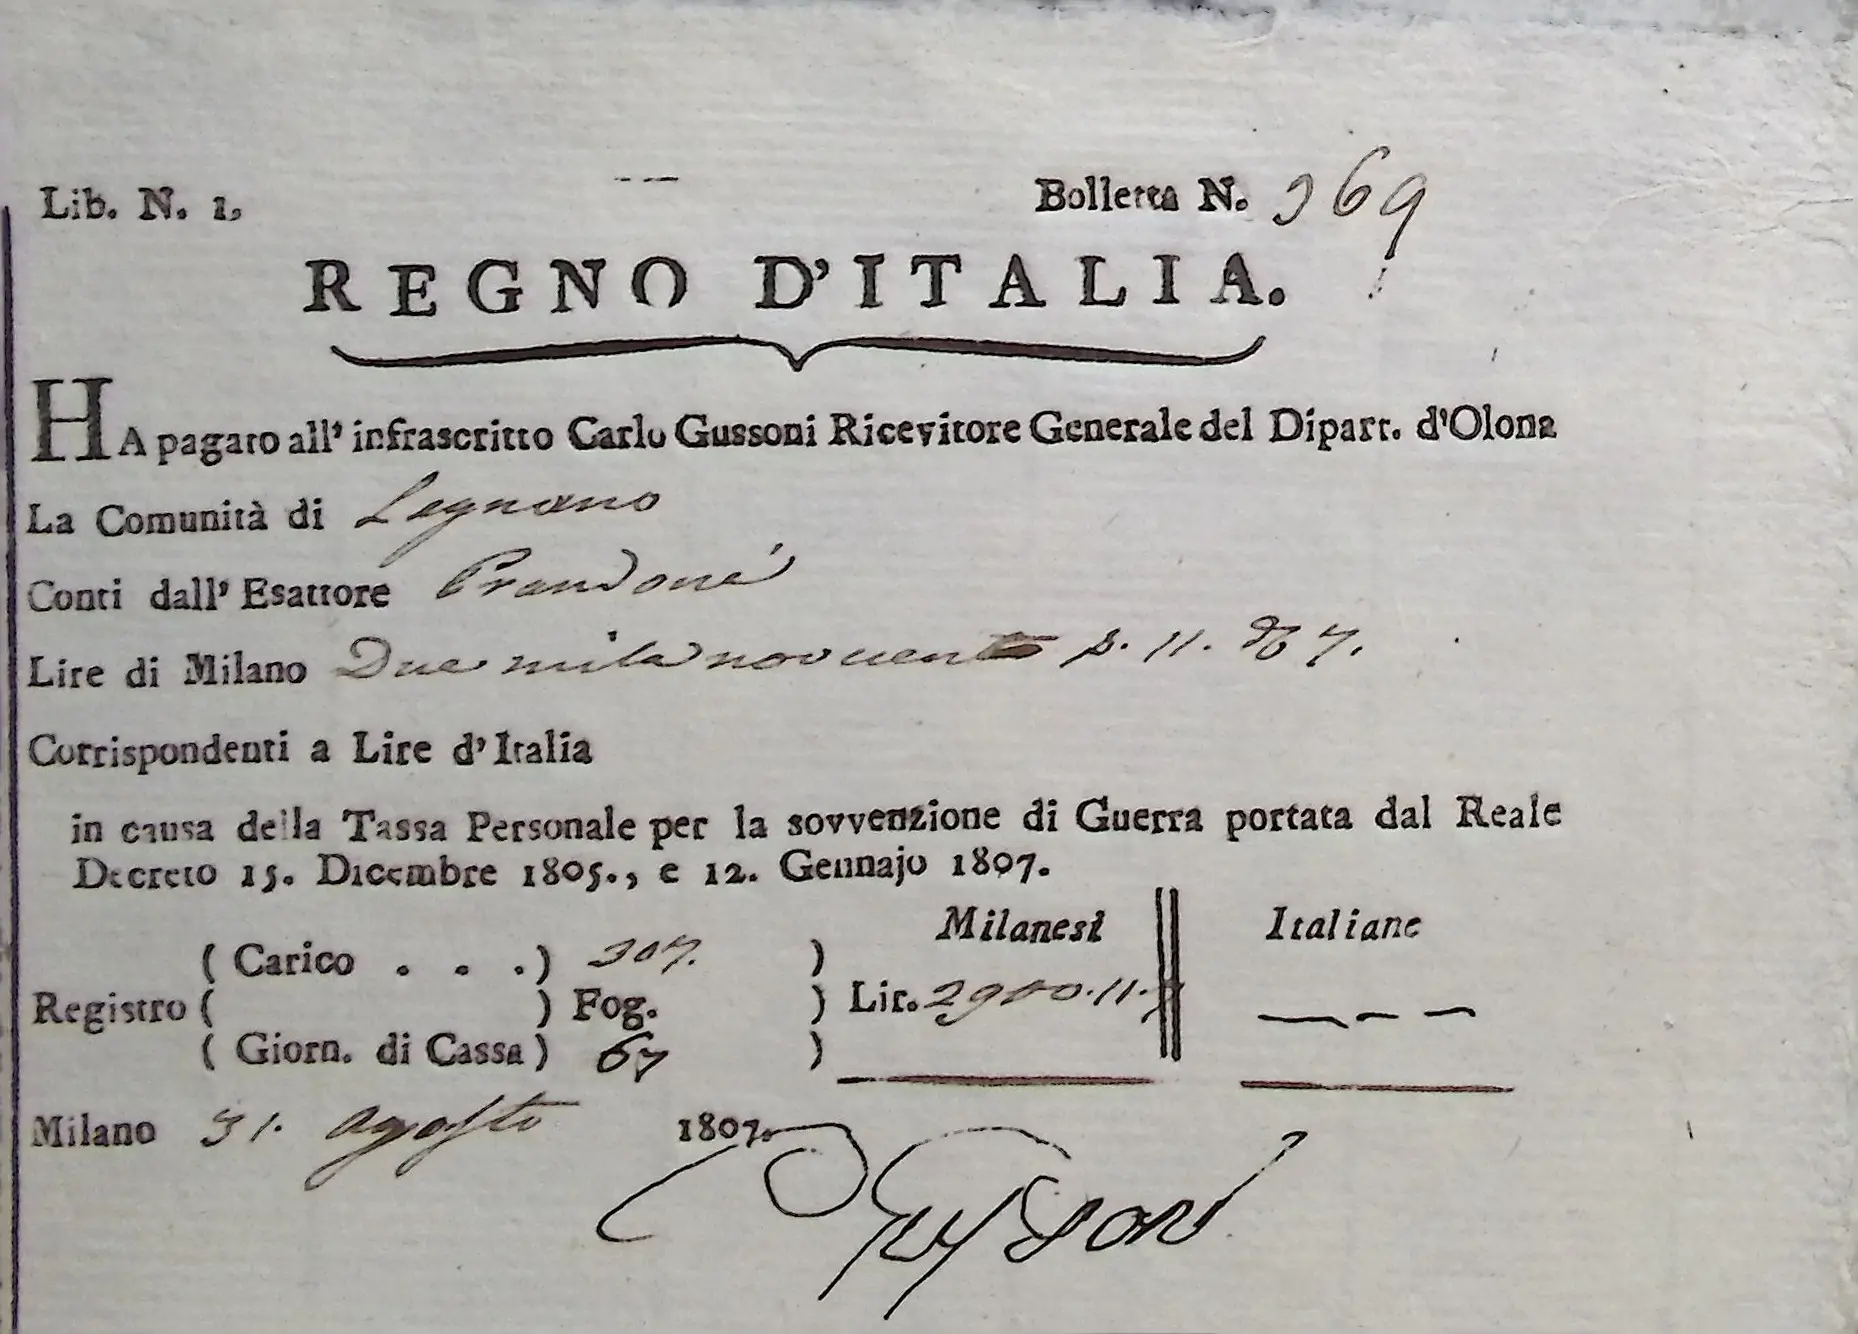 Lib. N. 1.
Bolletta N. 369
REGNO D'ITALIA.
HA pagato all' infrascritto Carlo Gussoni Ricevitore Generale del Dipart. d'Olona
La Comunità di Legnano
Conti dall' Esattore Prandoni
Lire di Milano Due mila novecento s. 11. d 7.
Corrispondenti a Lire d'Italia
in causa della Tassa Personale per la sovvenzione di Guerra portata dal Reale
Decreto 15. Dicembre 1805., e 12. Gennajo 1807.
Milanesi Italiane
( Carico . . . ) 307. )
Registro ( ) Fog. ) Lir. 2900.11.7
( Giorn. di Cassa ) 67 )
Milano 31. agosto 1807.
Gussoni